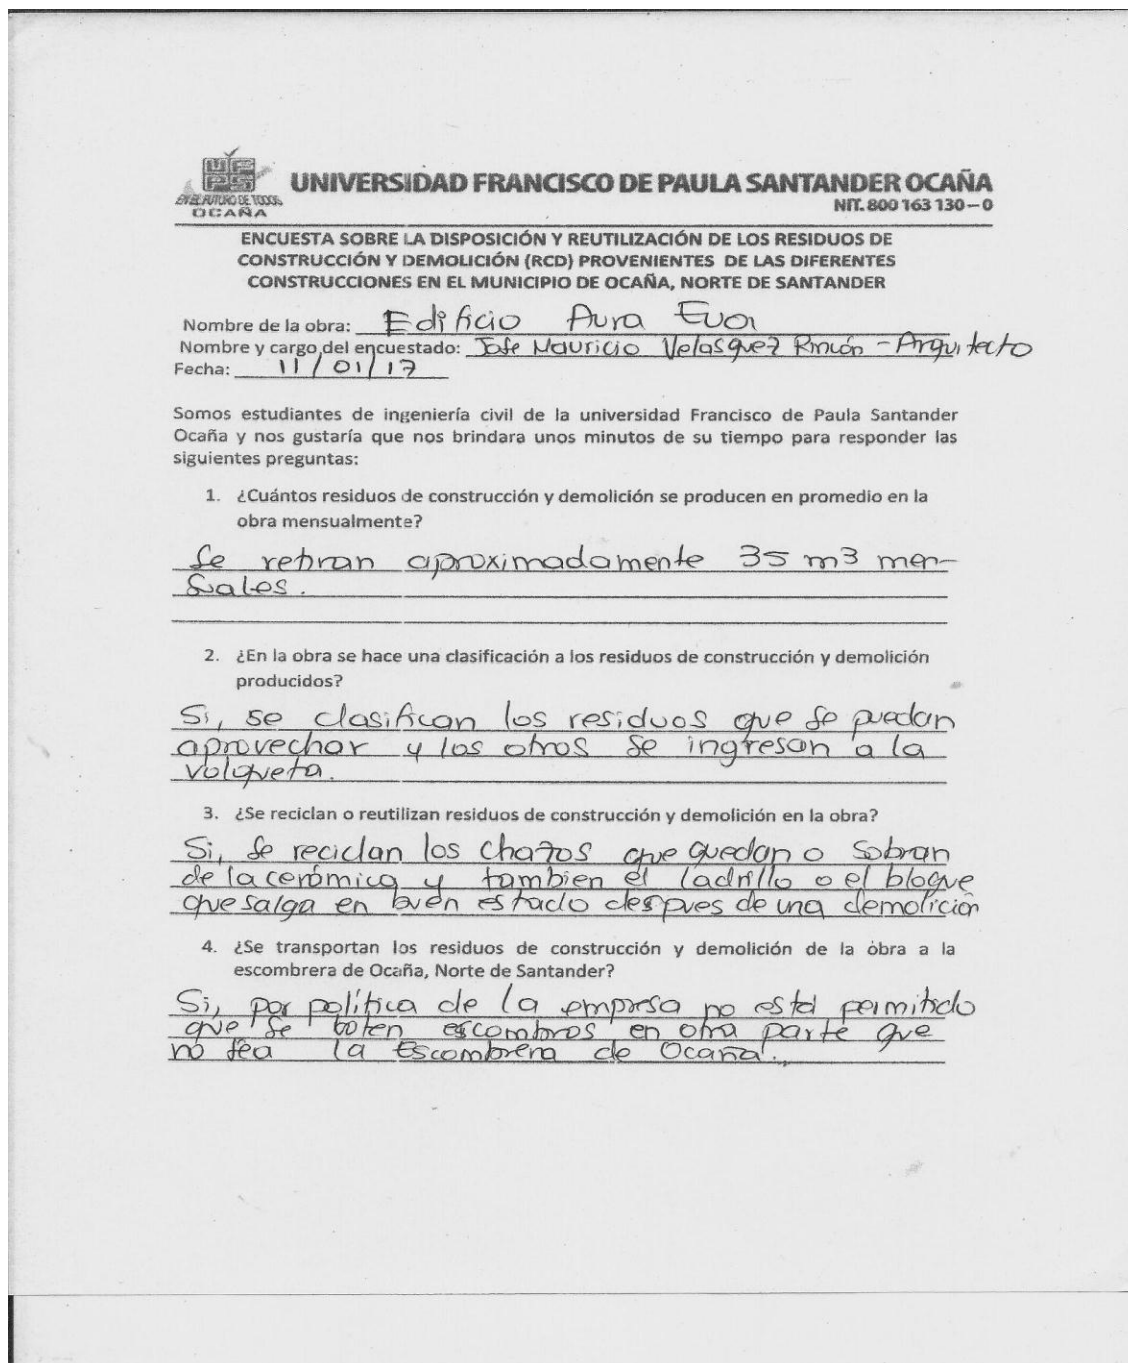 UFPS
EN EL FUTURO DE TODOS
OCAÑA
UNIVERSIDAD FRANCISCO DE PAULA SANTANDER OCAÑA
NIT. 800 163 130 – 0
ENCUESTA SOBRE LA DISPOSICIÓN Y REUTILIZACIÓN DE LOS RESIDUOS DE
CONSTRUCCIÓN Y DEMOLICIÓN (RCD) PROVENIENTES DE LAS DIFERENTES
CONSTRUCCIONES EN EL MUNICIPIO DE OCAÑA, NORTE DE SANTANDER
Nombre de la obra: Edificio Aura Eva
Nombre y cargo del encuestado: Jose Mauricio Velasquez Rincón - Arquitecto
Fecha: 11/01/17
Somos estudiantes de ingeniería civil de la universidad Francisco de Paula Santander
Ocaña y nos gustaría que nos brindara unos minutos de su tiempo para responder las
siguientes preguntas:
1. ¿Cuántos residuos de construcción y demolición se producen en promedio en la
obra mensualmente?
Se retiran aproximadamente 35 m3 men-
suales.
2. ¿En la obra se hace una clasificación a los residuos de construcción y demolición
producidos?
Si, se clasifican los residuos que se puedan
aprovechar y los otros se ingresan a la
volqueta.
3. ¿Se reciclan o reutilizan residuos de construcción y demolición en la obra?
Si, se reciclan los chazos que quedan o sobran
de la cerámica y tambien el ladrillo o el bloque
que salga en buen estado despues de una demolición
4. ¿Se transportan los residuos de construcción y demolición de la obra a la
escombrera de Ocaña, Norte de Santander?
Si, por política de la empresa no está permitido
que se boten escombros en otra parte que
no sea la Escombrera de Ocaña.